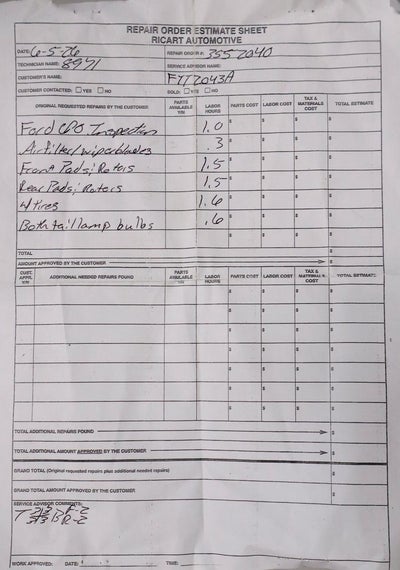 REPAIR ORDER ESTIMATE SHEET
RICART AUTOMOTIVE
DATE: 6-5-26 REPAIR ORDER #: 3552040
TECHNICIAN NAME: 8971 SERVICE ADVISOR NAME:
CUSTOMER'S NAME: FTT2043A
CUSTOMER CONTACTED: ☐ YES ☐ NO SOLD: ☐ YES ☐ NO
ORIGINAL REQUESTED REPAIRS BY THE CUSTOMER PARTS AVAILABLE Y/N LABOR HOURS PARTS COST LABOR COST TAX & MATERIALS COST TOTAL ESTIMATE
Ford CPO Inspection 1.0 $ $ $ $
Air filter/wiperblades .3 $ $ $ $
Front Pads; Rotors 1.5 $ $ $ $
Rear Pads; Rotors 1.5 $ $ $ $
4 tires 1.6 $ $ $ $
Both tail lamp bulbs .6 $ $ $ $
TOTAL $
AMOUNT APPROVED BY THE CUSTOMER $
CUST. APPR. Y/N ADDITIONAL NEEDED REPAIRS FOUND PARTS AVAILABLE Y/N LABOR HOURS PARTS COST LABOR COST TAX & MATERIALS COST TOTAL ESTIMATE
$ $ $ $
$ $ $ $
$ $ $ $
$ $ $ $
$ $ $ $
$ $ $ $
$ $ $ $
TOTAL ADDITIONAL REPAIRS FOUND $
TOTAL ADDITIONAL AMOUNT APPROVED BY THE CUSTOMER $
GRAND TOTAL (Original requested repairs plus additional needed repairs) $
GRAND TOTAL AMOUNT APPROVED BY THE CUSTOMER $
SERVICE ADVISOR COMMENTS:
T 3/3 B F-2
3/3 R-2
WORK APPROVED: DATE: TIME: